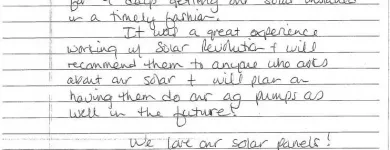 for + days getting our solar installed
in a timely fashion.
It was a great experience
working w/ Solar Revolution + will
recommend them to anyone who asks
about our solar + will plan on
having them do our ag pumps as
well in the future!
We love our solar panels!